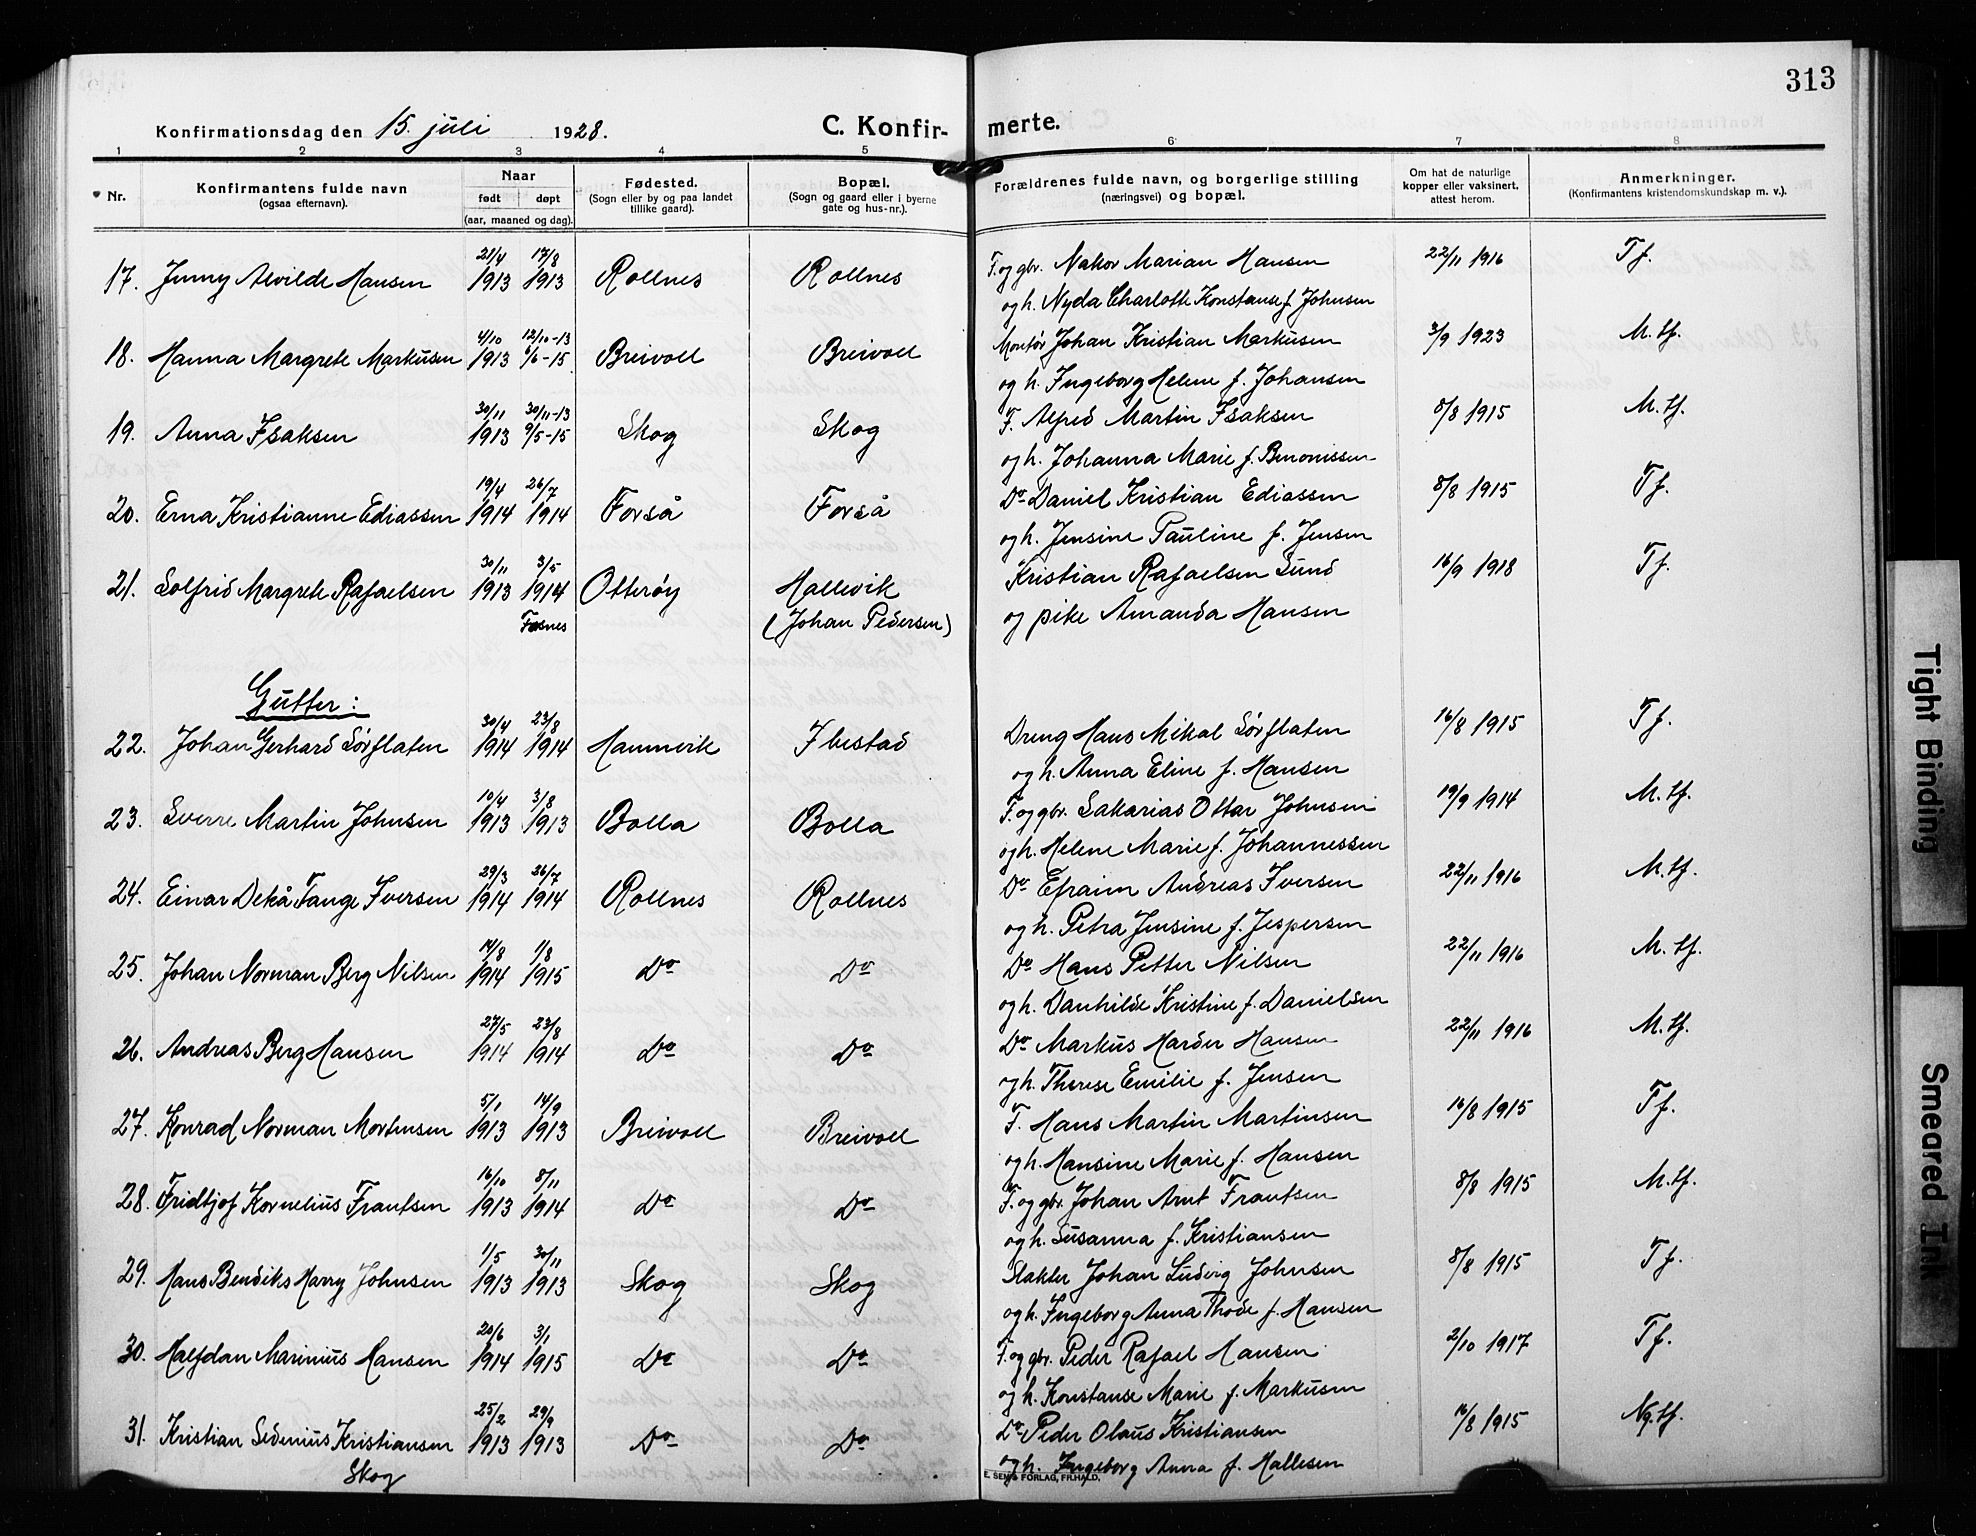 313
Konfirmationsdag den 15. juli 1928.
C. Konfir-
merte.
1 2 3 4 5 6 7 8
Nr.
Konfirmantens fulde navn
(ogsaa efternavn).
Naar
født døpt
(aar, maaned og dag).
Fødested.
(Sogn eller by og paa landet
tillike gaard).
Bopæl.
(Sogn og gaard eller i byerne
gate og hus-nr.).
Forældrenes fulde navn, og borgerlige stilling
(næringsvei) og bopæl.
Om hat de naturlige
kopper eller vaksinert,
attest herom.
Anmerkninger.
(Konfirmantens kristendomskundskap m. v.).
21/4 17/8
17. Jenny Alvilde Hansen 1913 1913 Rollnes Rollnes F. og gbr. Nakor Marian Hansen 22/11 1916 T f.
og h. Nyda Charlotte Konstanse f. Johnsen
4/10 12/10-13
18. Hanna Margrete Markusen 1913 6/6-15 Breivoll Breivoll Montør Johan Kristian Markusen 3/9 1923 M. tf.
og h. Ingeborg Helene f. Johansen
30/11 30/11-13
19. Anna Isaksen 1913 9/5-15 Skog Skog F. Alfred Martin Isaksen 8/8 1915 M. tf.
og h. Johanna Marie f. Benonissen
19/4 26/7
20. Erna Kristianne Ediassen 1914 1914 Forså Forså Do Daniel Kristian Ediassen 8/8 1915 T f.
og h. Jensine Pauline f. Jensen
30/11 3/5
21. Solfrid Margrete Rafaelsen 1913 1914 Otterøy Hallevik Kristian Rafaelsen Sund 16/9 1918 T f.
Fosnes (Johan Pedersen) og pike Amanda Hansen
Gutter:
30/4 23/8
22. Johan Gerhard Sørflaten 1914 1914 Hamnvik Ibestad Dreng Hans Mikal Sørflaten 16/8 1915 T f.
og h. Anna Eline f. Hansen
10/4 3/8
23. Sverre Martin Johnsen 1913 1913 Bolla Bolla F. og gbr. Sakarias Ottar Johnsen 19/9 1914 M. tf.
og h. Helene Marie f. Johannessen
29/3 26/7
24. Einar Dekå Tange Iversen 1914 1914 Rollnes Rollnes Do Efraim Andreas Iversen 22/11 1916 M. tf.
og h. Petra Jensine f. Jespersen
14/8 1/8
25. Johan Norman Berg Nilsen 1914 1915 Do Do Do Hans Petter Nilsen 22/11 1916 M. tf.
og h. Danhilde Kristine f. Danielsen
27/5 23/8
26. Andreas Berg Hansen 1914 1914 Do Do Do Markus Harder Hansen 22/11 1916 M. tf.
og h. Therese Emilie f. Jensen
5/1 14/9
27. Konrad Norman Mortensen 1913 1913 Breivoll Breivoll F. Hans Martin Martinsen 16/8 1915 T f.
og h. Hansine Marie f. Hansen
16/10 8/11
28. Fridtjof Kornelius Frantsen 1913 1914 Do Do F. og gbr. Johan Arnt Frantsen 8/8 1915 M. tf.
og h. Susanna f. Kristiansen
1/5 30/11
29. Hans Bendiks Harry Johnsen 1913 1913 Skog Skog Slakter Johan Ludvig Johnsen 8/8 1915 T f.
og h. Ingeborg Anna Thode f. Hansen
20/6 3/1
30. Halfdan Marinius Hansen 1914 1915 Do Do F. og gbr. Peder Rafael Hansen 2/10 1917 T f.
og h. Konstanse Marie f. Markusen
25/2 29/9
31. Kristian Sedenius Kristiansen 1913 1913 Do Do Do Peder Olaus Kristiansen 16/8 1915 Ng. tf.
Skog og h. Ingeborg Anna f. Hallesen
E. SEMS FORLAG, FR.HALD.
Tight Binding
Smeared Ink